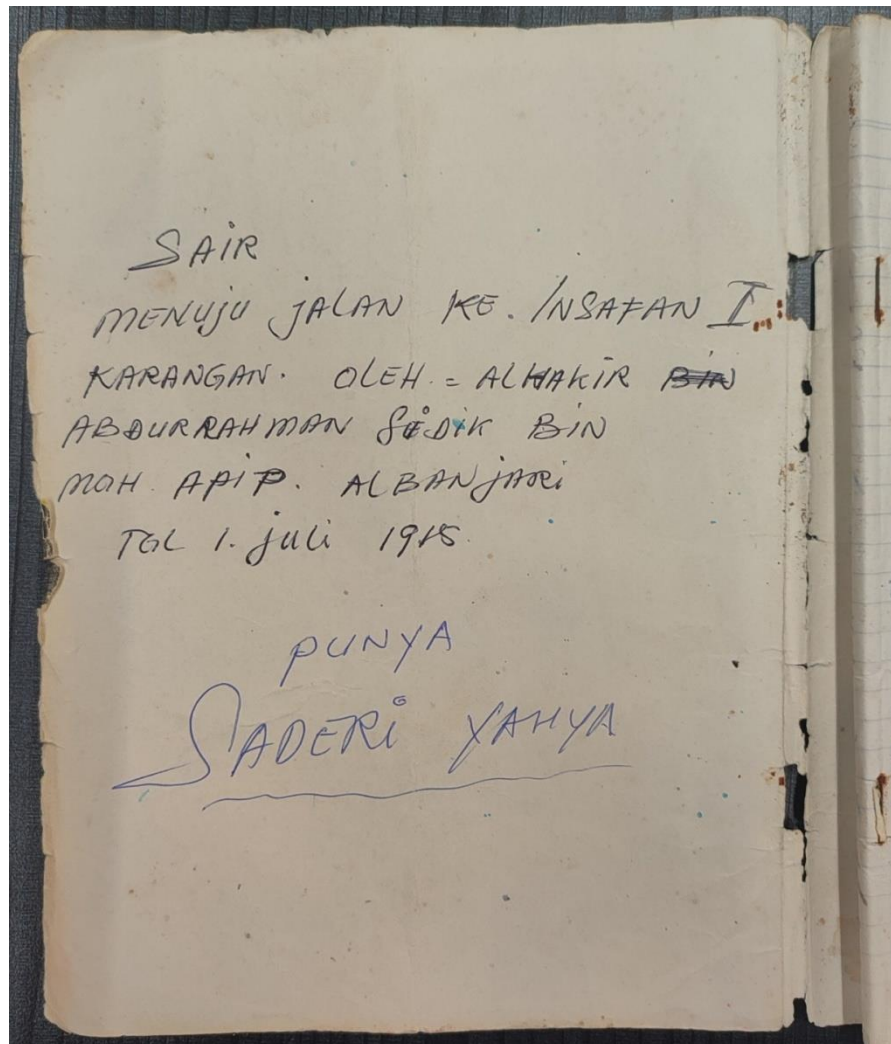 SAIR
MENUJU JALAN KE. INSAFAN I
KARANGAN. OLEH = ALHAKIR BIN
ABDURRAHMAN SEDIK BIN
MOH. APIP. ALBANJARI
TGL 1. juli 1915
PUNYA
SADERI YAHYA